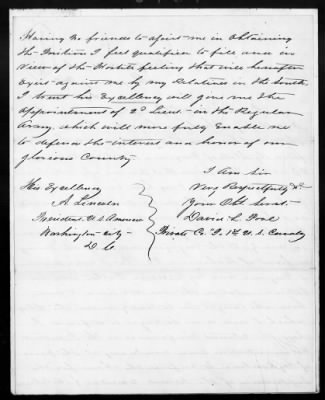 Having no friends to assist me in obtaining
the Position I feel qualified to fill and in
View of the Hostile feeling that will hereafter
Exist against me by my Relatives in the South
I trust his Excellency will give me the
appointment of 2d Lieut. in the Regular
Army, which will more fully Enable me
to defend the interest and honor of our
glorious Country
I Am Sir
Very Respectfully &c
Your Obt Servt
David L.
Private Co. 1st U. S. Cavalry
His Excellency
A. Lincoln
President U S America
Washington City
D C